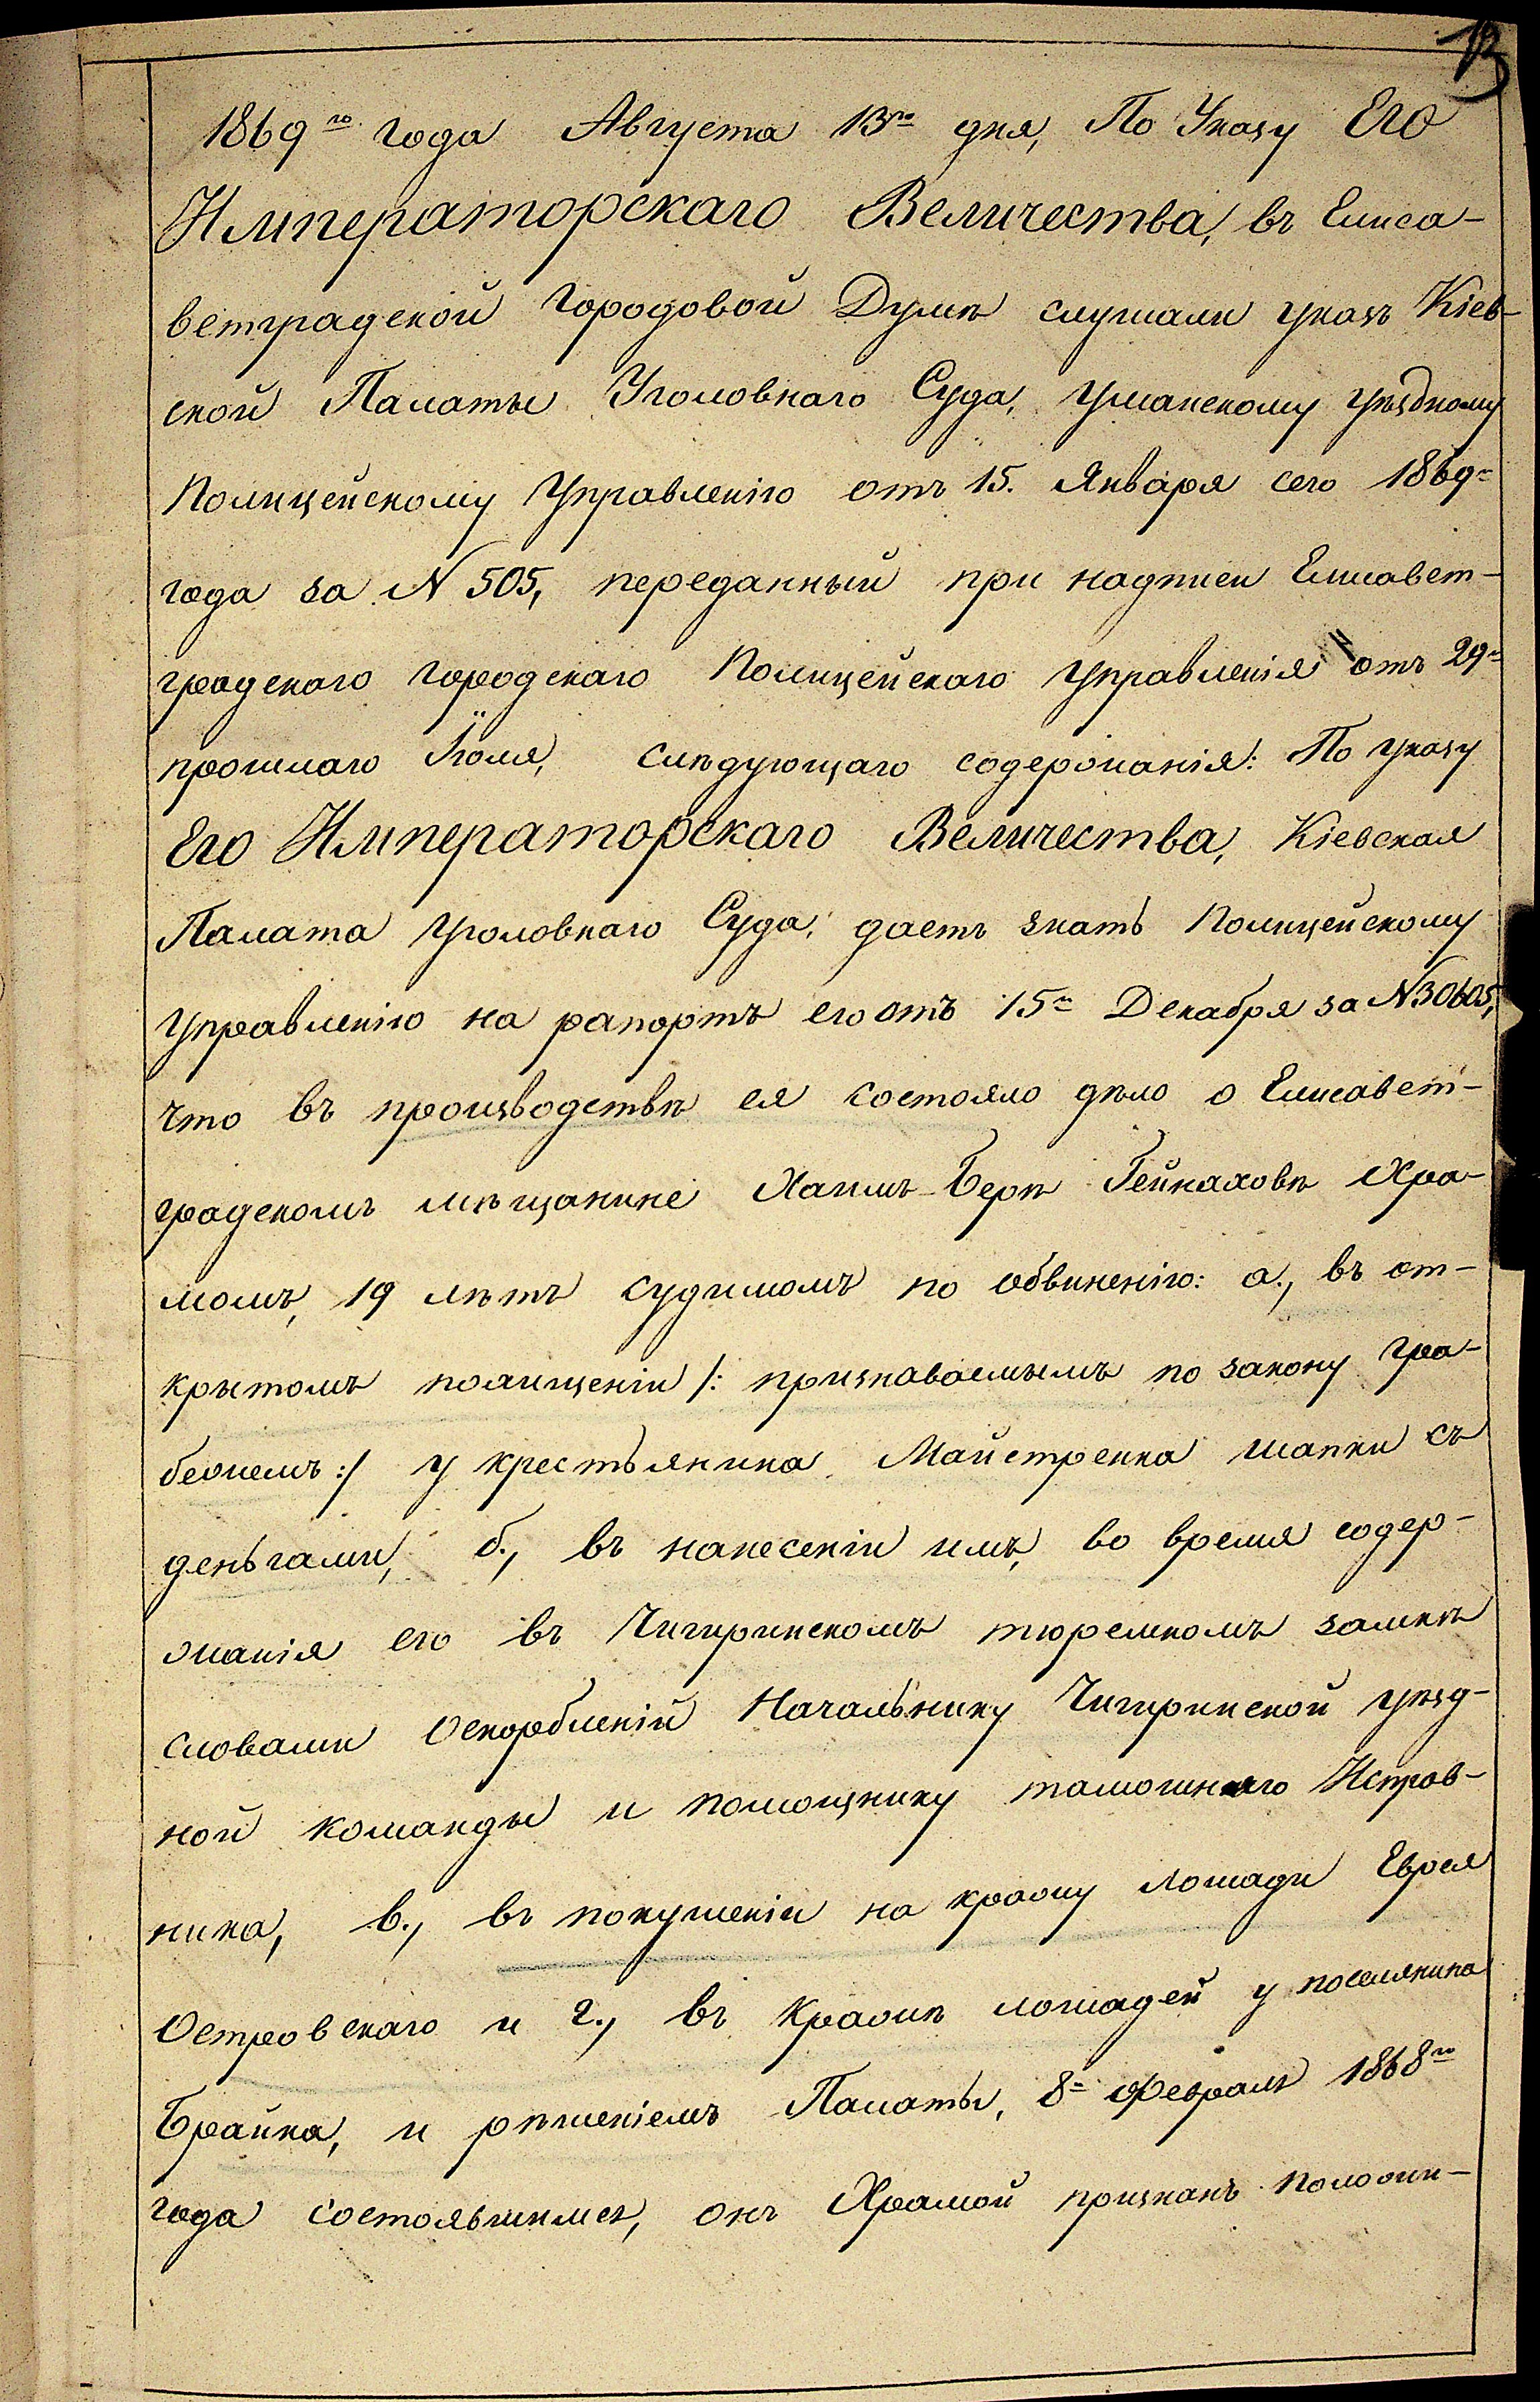 13
1869го года Августа 13го дня, По Указу Его
Императорскаго Величества, въ Елиса-
ветградской Городовой Думѣ слушали указъ Кіев-
ской Палаты Уголовнаго Суда, Уманскому уѣздному
Полицейскому Управленію отъ 15. Января сего 1869го
года за N 505, переданный при надписи Елисавет-
градскаго городскаго Полицейскаго Управленія отъ 29го
прошлаго Іюля, слѣдующаго содержанія: По указу
Его Императорскаго Величества, Кіевская
Палата Уголовнаго Суда, даетъ знать Полицейскому
Управленію на рапортъ его отъ 15го Декабря за N 30605,
что въ производствѣ ея состояло дѣло о Елисавет-
градскомъ мѣщанине Хаимъ-Берѣ Гейнаховѣ Хра-
момъ, 19 лѣтъ судимомъ по обвиненію: а., въ от-
крытомъ похищеніи /: признаваемымъ по закону гра-
бежемъ :/ у крестьянина Майстренка шапки съ
деньгами, б., въ нанесеніи имъ, во время содер-
жанія его въ Чигиринскомъ тюремномъ замкѣ
словами оскорбленій Начальнику Чигиринской уѣзд-
ной команды и помощнику тамошняго Исправ-
ника, в., въ покушеніи на кражу лошади Еврея
Островскаго и г., въ кражѣ лошадей у поселянина
Брайка, и рѣшеніемъ Палаты, 8го Февраля 1868го
года состоявшимся, онъ Храмой признанъ положи-